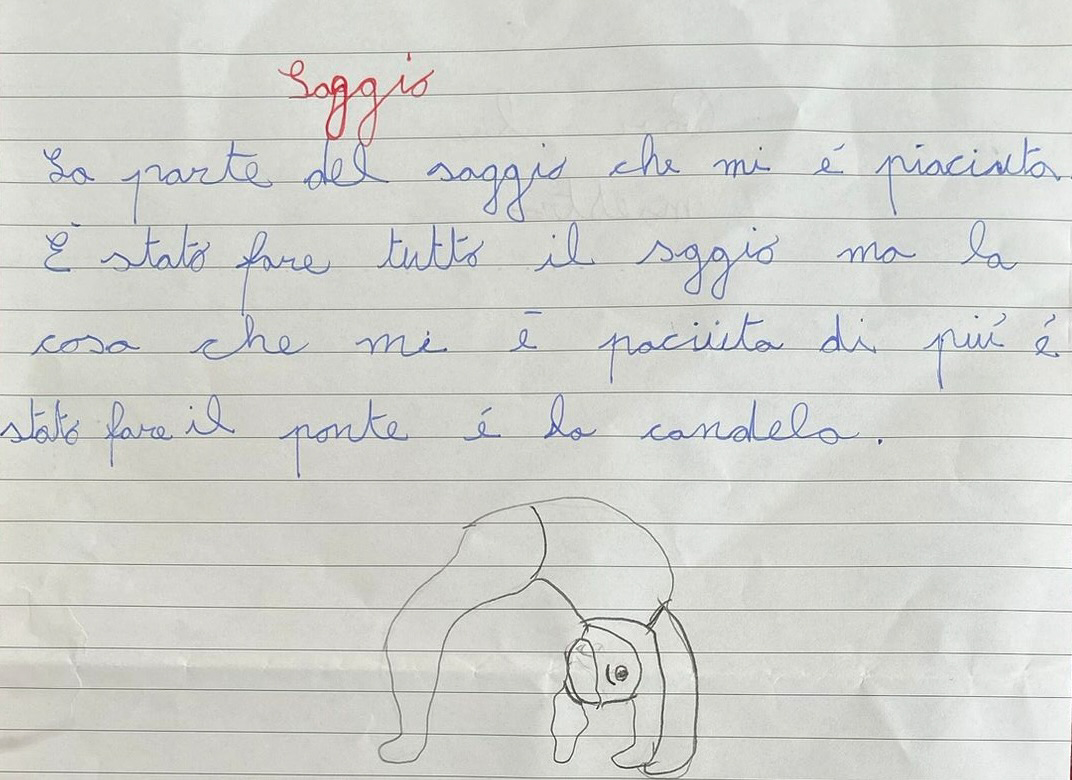 Saggio
La parte del saggio che mi é piaciuta
È stato fare tutto il sggio ma la
cosa che mi è paciuita di piú é
stato fare il ponte é la candela.